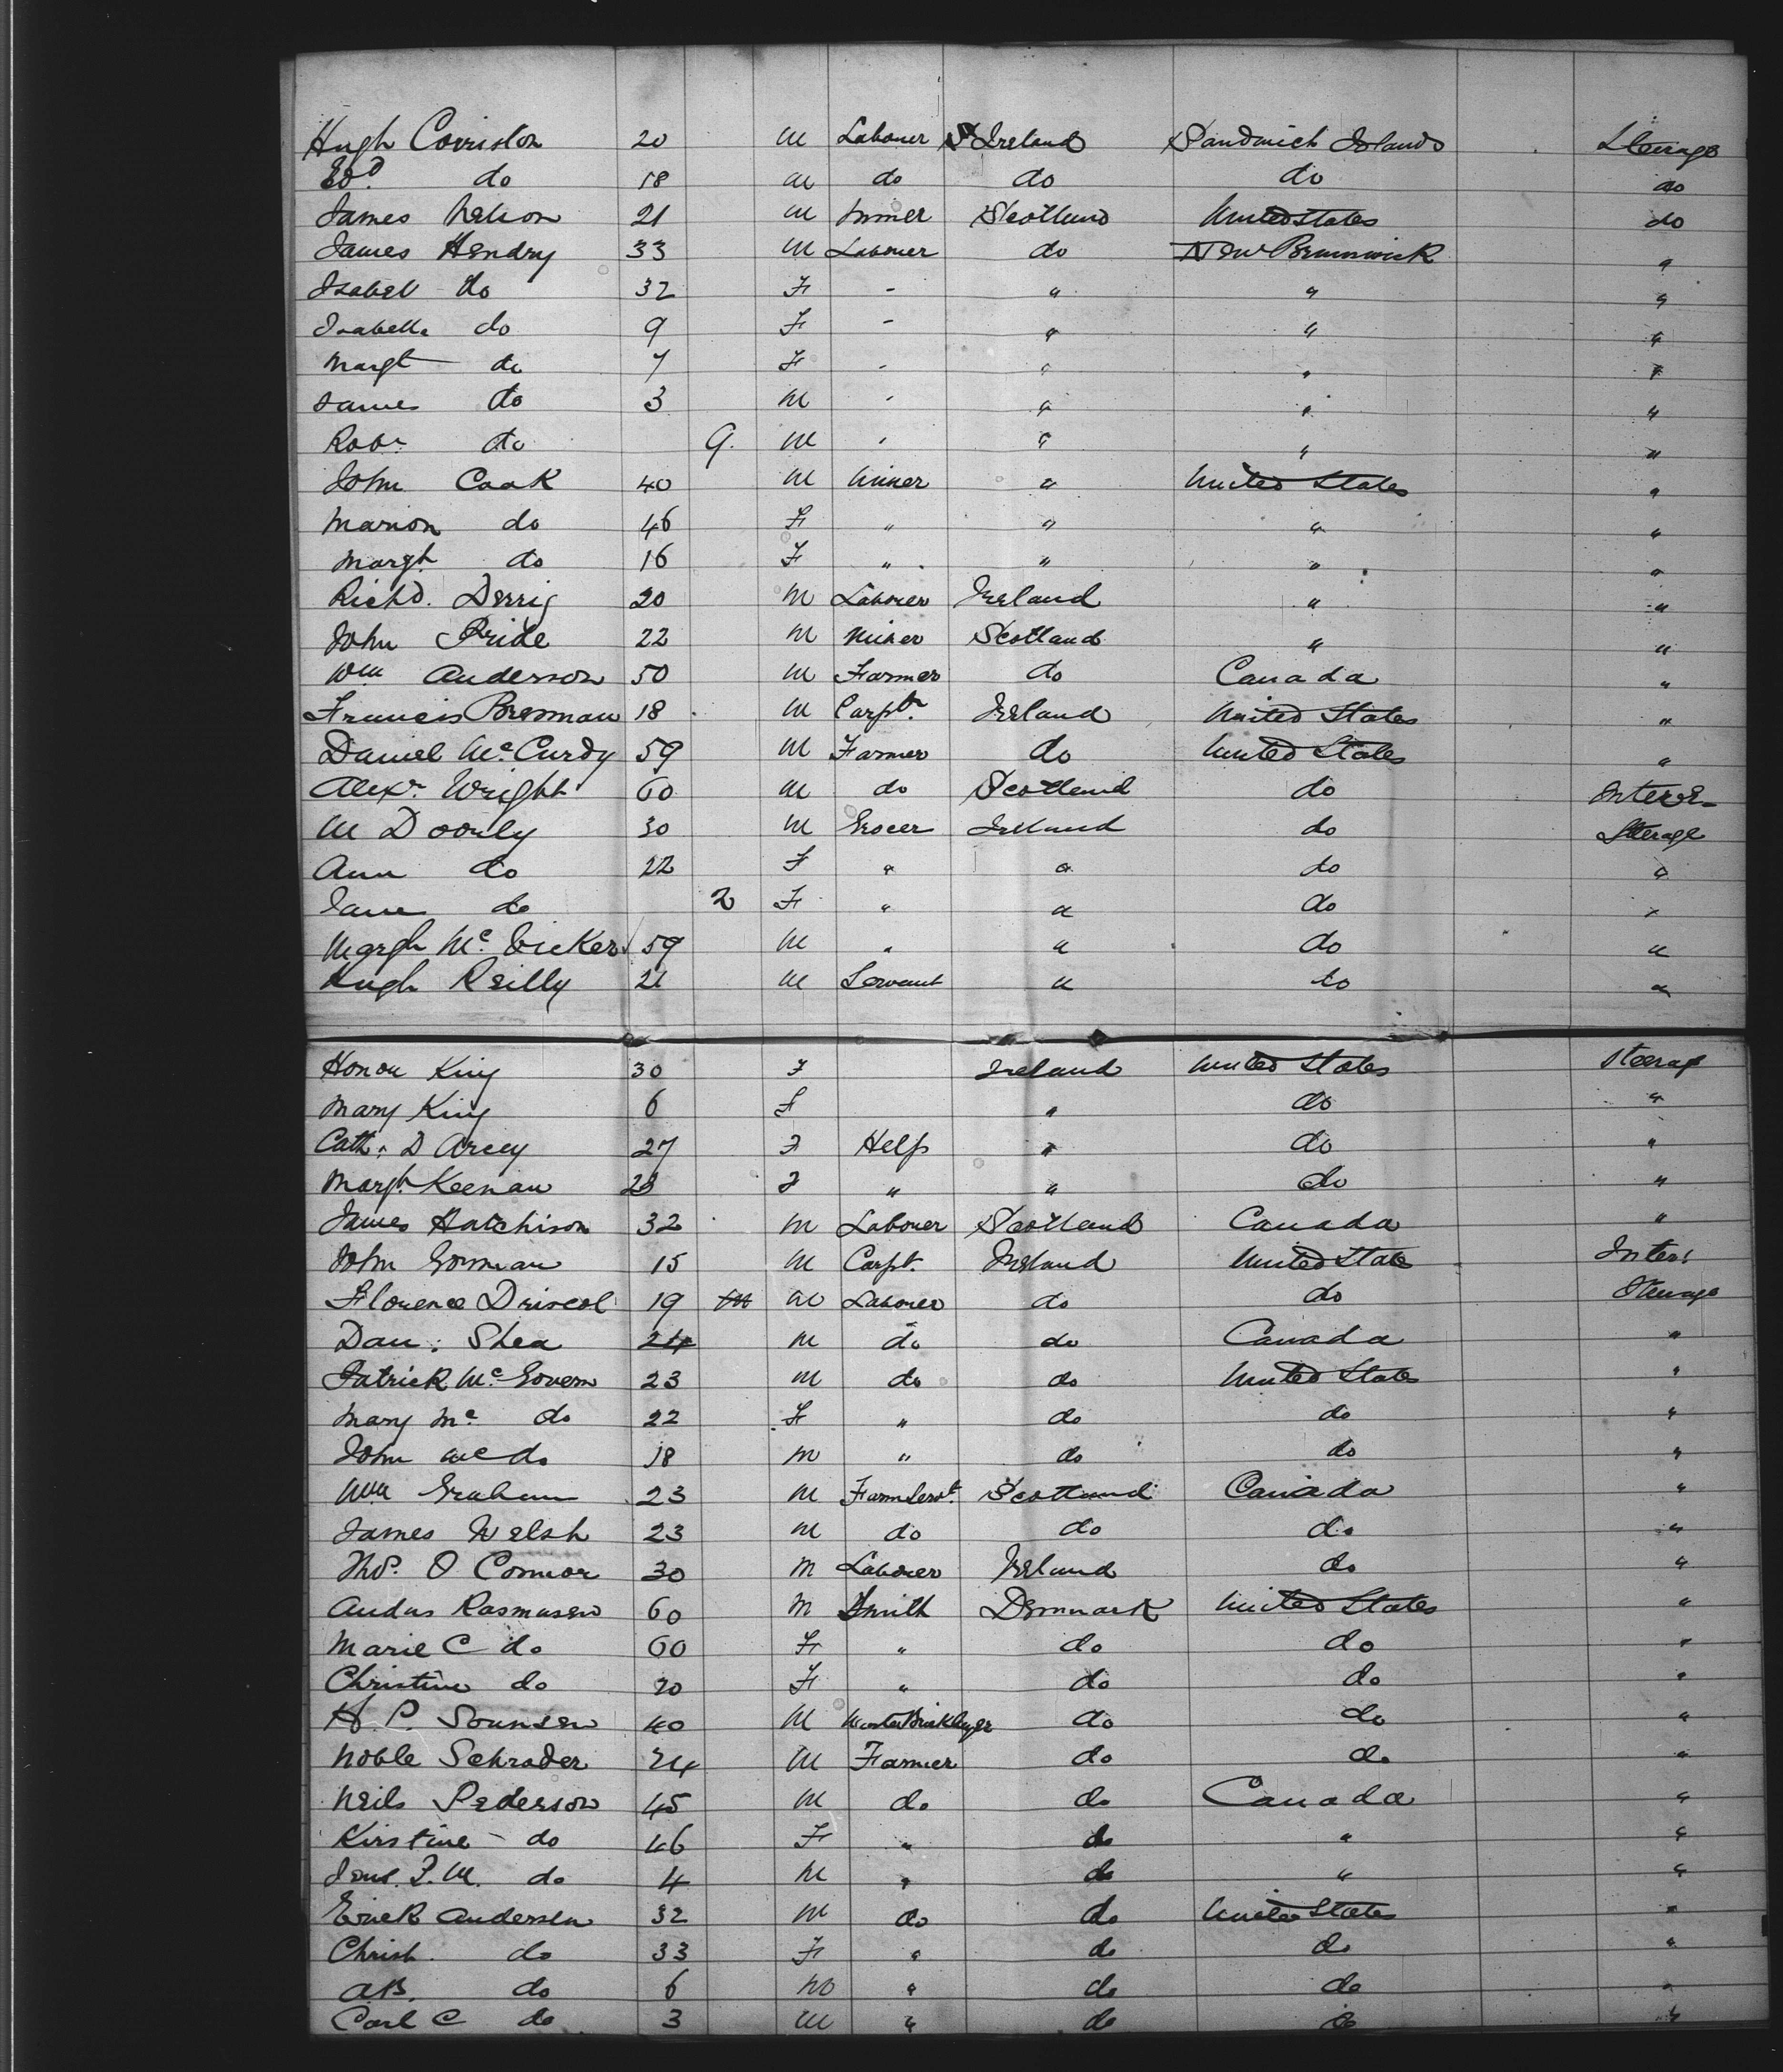 Hugh Corriston 20 M Labourer Ireland Sandwich Islands Steerage
Edd. do 18 M do do do do
James Nelson 21 M Miner Scotland United States do
James Hendry 33 M Labourer do New Brunswick "
Isabel do 32 F - " " "
Isabella do 9 F - " " "
Margt do 7 F - " " "
James do 3 M - " " "
Robt do 9 M - " " "
John Cook 40 M Miner " United States "
Marion do 46 F " " " "
Margt. do 16 F " " " "
Richd. Derrig 20 M Labourer Ireland " "
John Pride 22 M Miner Scotland " "
Wm Anderson 50 M Farmer do Canada "
Francis Bresnnan 18 M Carptr. Ireland United States "
Daniel McCurdy 59 M Farmer do United States "
Alexr. Wright 60 M do Scotland do Inter
M Doorly 30 M Grocer Ireland do Steerage
Ann do 22 F " " do "
Jane do 2 F " " do "
Margt McVicker 59 M " " do "
Hugh Reilly 21 M Servant " do "
Honor King 30 F Ireland United States Steerag
Mary King 6 F " do "
Cath: D Arcey 27 F Help " do "
Margt. Keenan 23 F " " do "
James Hutchison 32 M Labourer Scotland Canada "
John Gorman 15 M Carpt. Ireland United States Inter:
Florence Driscol 19 M Labourer do do Steerage
Dan: Shea 24 M do do Canada "
Patrick McGovern 23 M do do United States "
Mary Mc do 22 F " do do "
John Mc do 18 M " do do "
Wm Graham 23 M Farm Servt. Scotland Canada "
James Welsh 23 M do do do "
Thos. O Connor 30 M Labourer Ireland do "
Andus Rasmusen 60 M Smith Denmark United States "
Marie C do 60 F " do do "
Christine do 20 F " do do "
H. P. Sounsen 40 M Master Bricklayer do do "
Noble Schrader 24 M Farmer do do "
Neils Pederson 45 M do do Canada "
Kirstine do 46 F " do " "
Jens. P. M. do 4 M " do " "
Erick Andersen 32 M do do United States "
Christ. do 33 F " do do "
AB. do 6 M " do do "
Carl C do 3 M " do do "